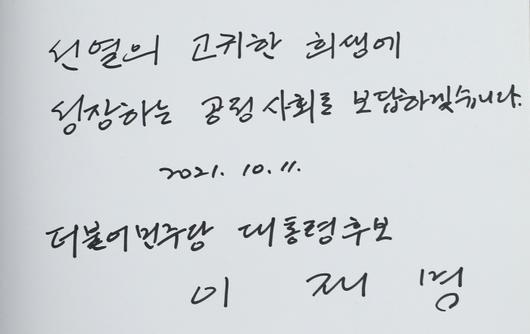 선열의 고귀한 희생에
성장하는 공정사회로 보답하겠습니다.
2021. 10. 11.
더불어민주당 대통령후보
이 재 명